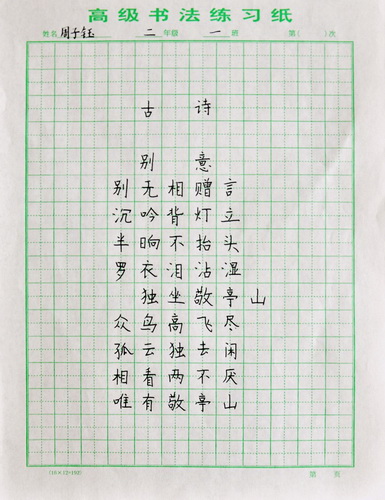 高级书法练习纸
姓名 周子钰 二 年级 一 班 第( )次
古 诗
别 意
别无相赠言
沉吟背灯立
半晌不抬头
罗衣泪沾湿
独坐敬亭山
众鸟高飞尽
孤云独去闲
相看两不厌
唯有敬亭山
(16×12=192) 第 页